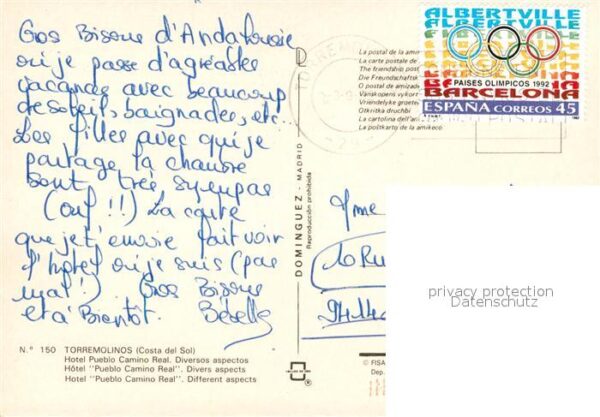 Gros Bisous d'Andalousie
où je passe d'agréables
vacances avec beaucoup
de soleil, baignades, etc...
Les filles avec qui je
partage la chambre
sont très sympas
(ouf !!) La carte
que je t'envoie fait voir
l'hôtel où je suis (pas
mal !) Gros Bisous
et à Bientôt.
N.º 150 TORREMOLINOS (Costa del Sol)
Hotel Pueblo Camino Real. Diversos aspectos
Hôtel "Pueblo Camino Real". Divers aspects
Hotel "Pueblo Camino Real". Different aspects
DOMINGUEZ - MADRID
Reproducción prohibida
La postal de la amis
La carte postale de
The friendship pos
Die Freundschaftsk
O postal de amizade
Vänskapens vykort
Vriendelijke groeten
Otkritka druchbi
La cartolina dell'ami
La postkarto de la amikeco
ALBERTVILLE
ALBERTVILLE
PAISES OLIMPICOS 1992
BARCELONA
ESPAÑA CORREOS 45
Mme
10 Ru
privacy protection
Datenschutz
© FISA
Dep.